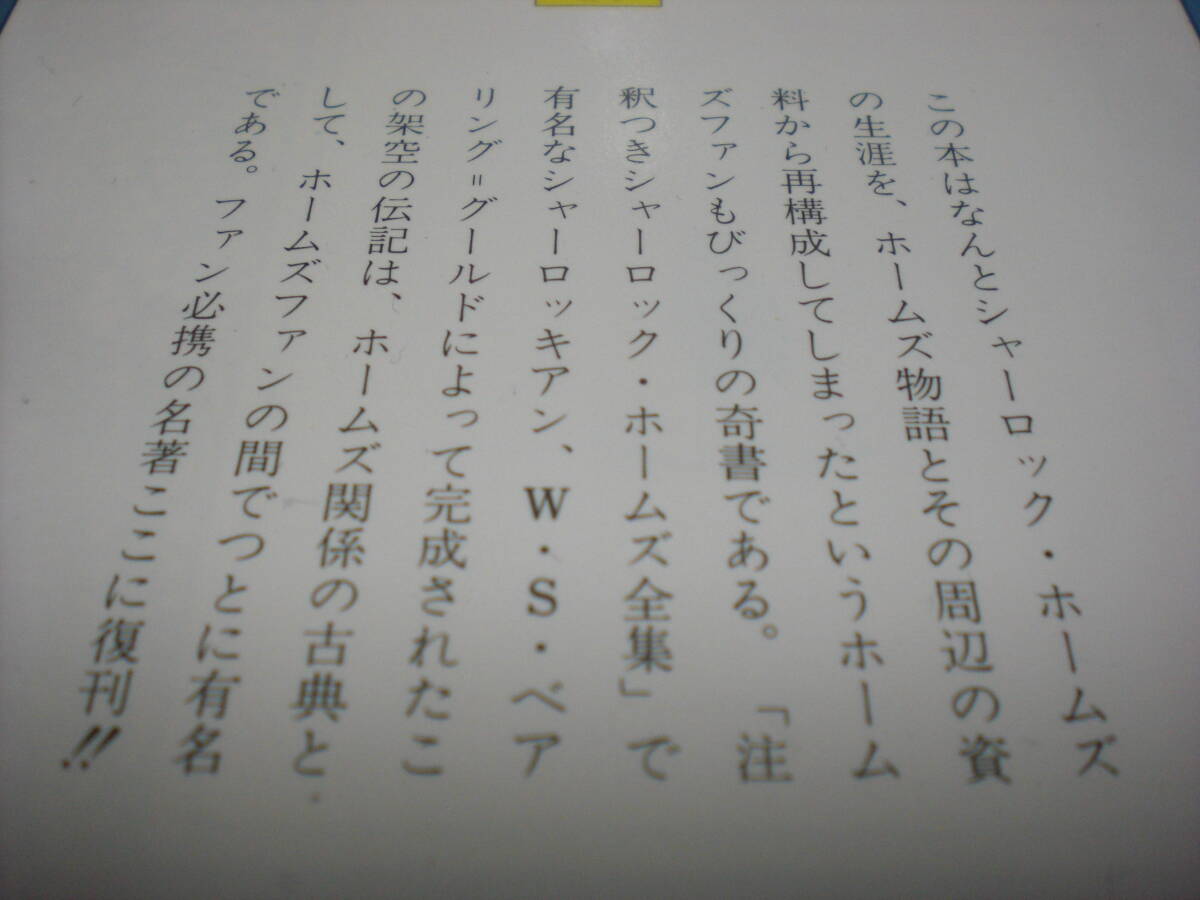 この本はなんとシャーロック・ホームズ
の生涯を、ホームズ物語とその周辺の資
料から再構成してしまったというホーム
ズファンもびっくりの奇書である。「注
釈つきシャーロック・ホームズ全集」で
有名なシャーロッキアン、W・S・ベア
リング=グールドによって完成されたこ
の架空の伝記は、ホームズ関係の古典と
して、ホームズファンの間でつとに有名
である。ファン必携の名著ここに復刊!!